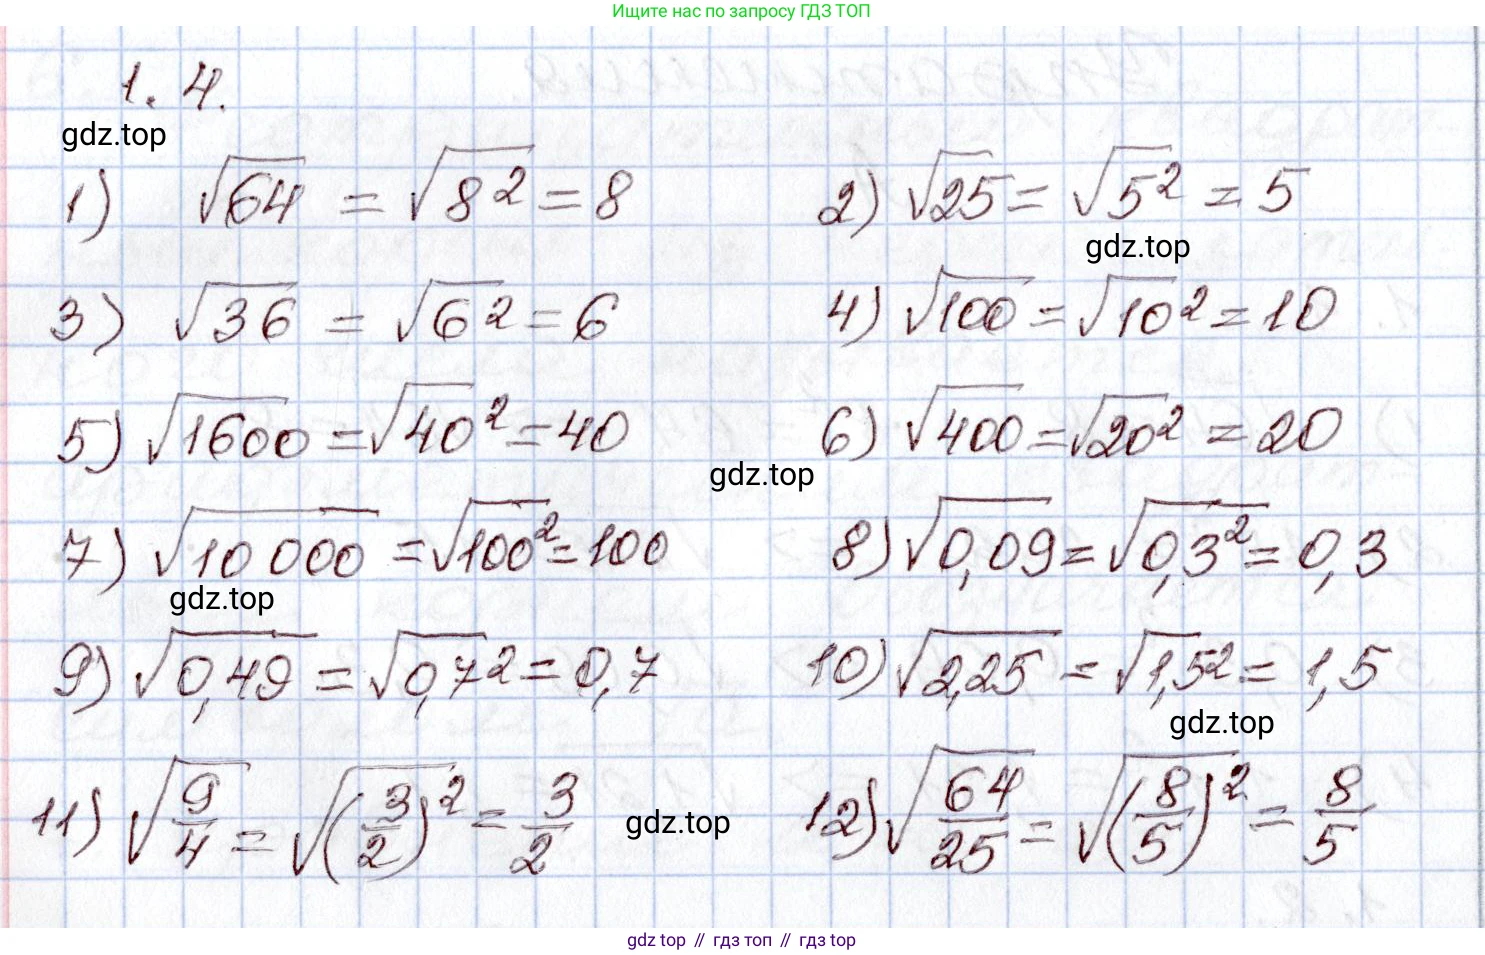 Ищите нас по запросу ГДЗ ТОП
1. 4.
gdz.top
1) √64 = √8² = 8
2) √25 = √5² = 5
gdz.top
3) √36 = √6² = 6
4) √100 = √10² = 10
5) √1600 = √40² = 40
6) √400 = √20² = 20
gdz.top
7) √10 000 = √100² = 100
8) √0,09 = √0,3² = 0,3
gdz.top
9) √0,49 = √0,7² = 0,7
10) √2,25 = √1,5² = 1,5
gdz.top
11) √9/4 = √(3/2)² = 3/2
gdz.top
12) √64/25 = √(8/5)² = 8/5
gdz top // гдз топ // gdz top